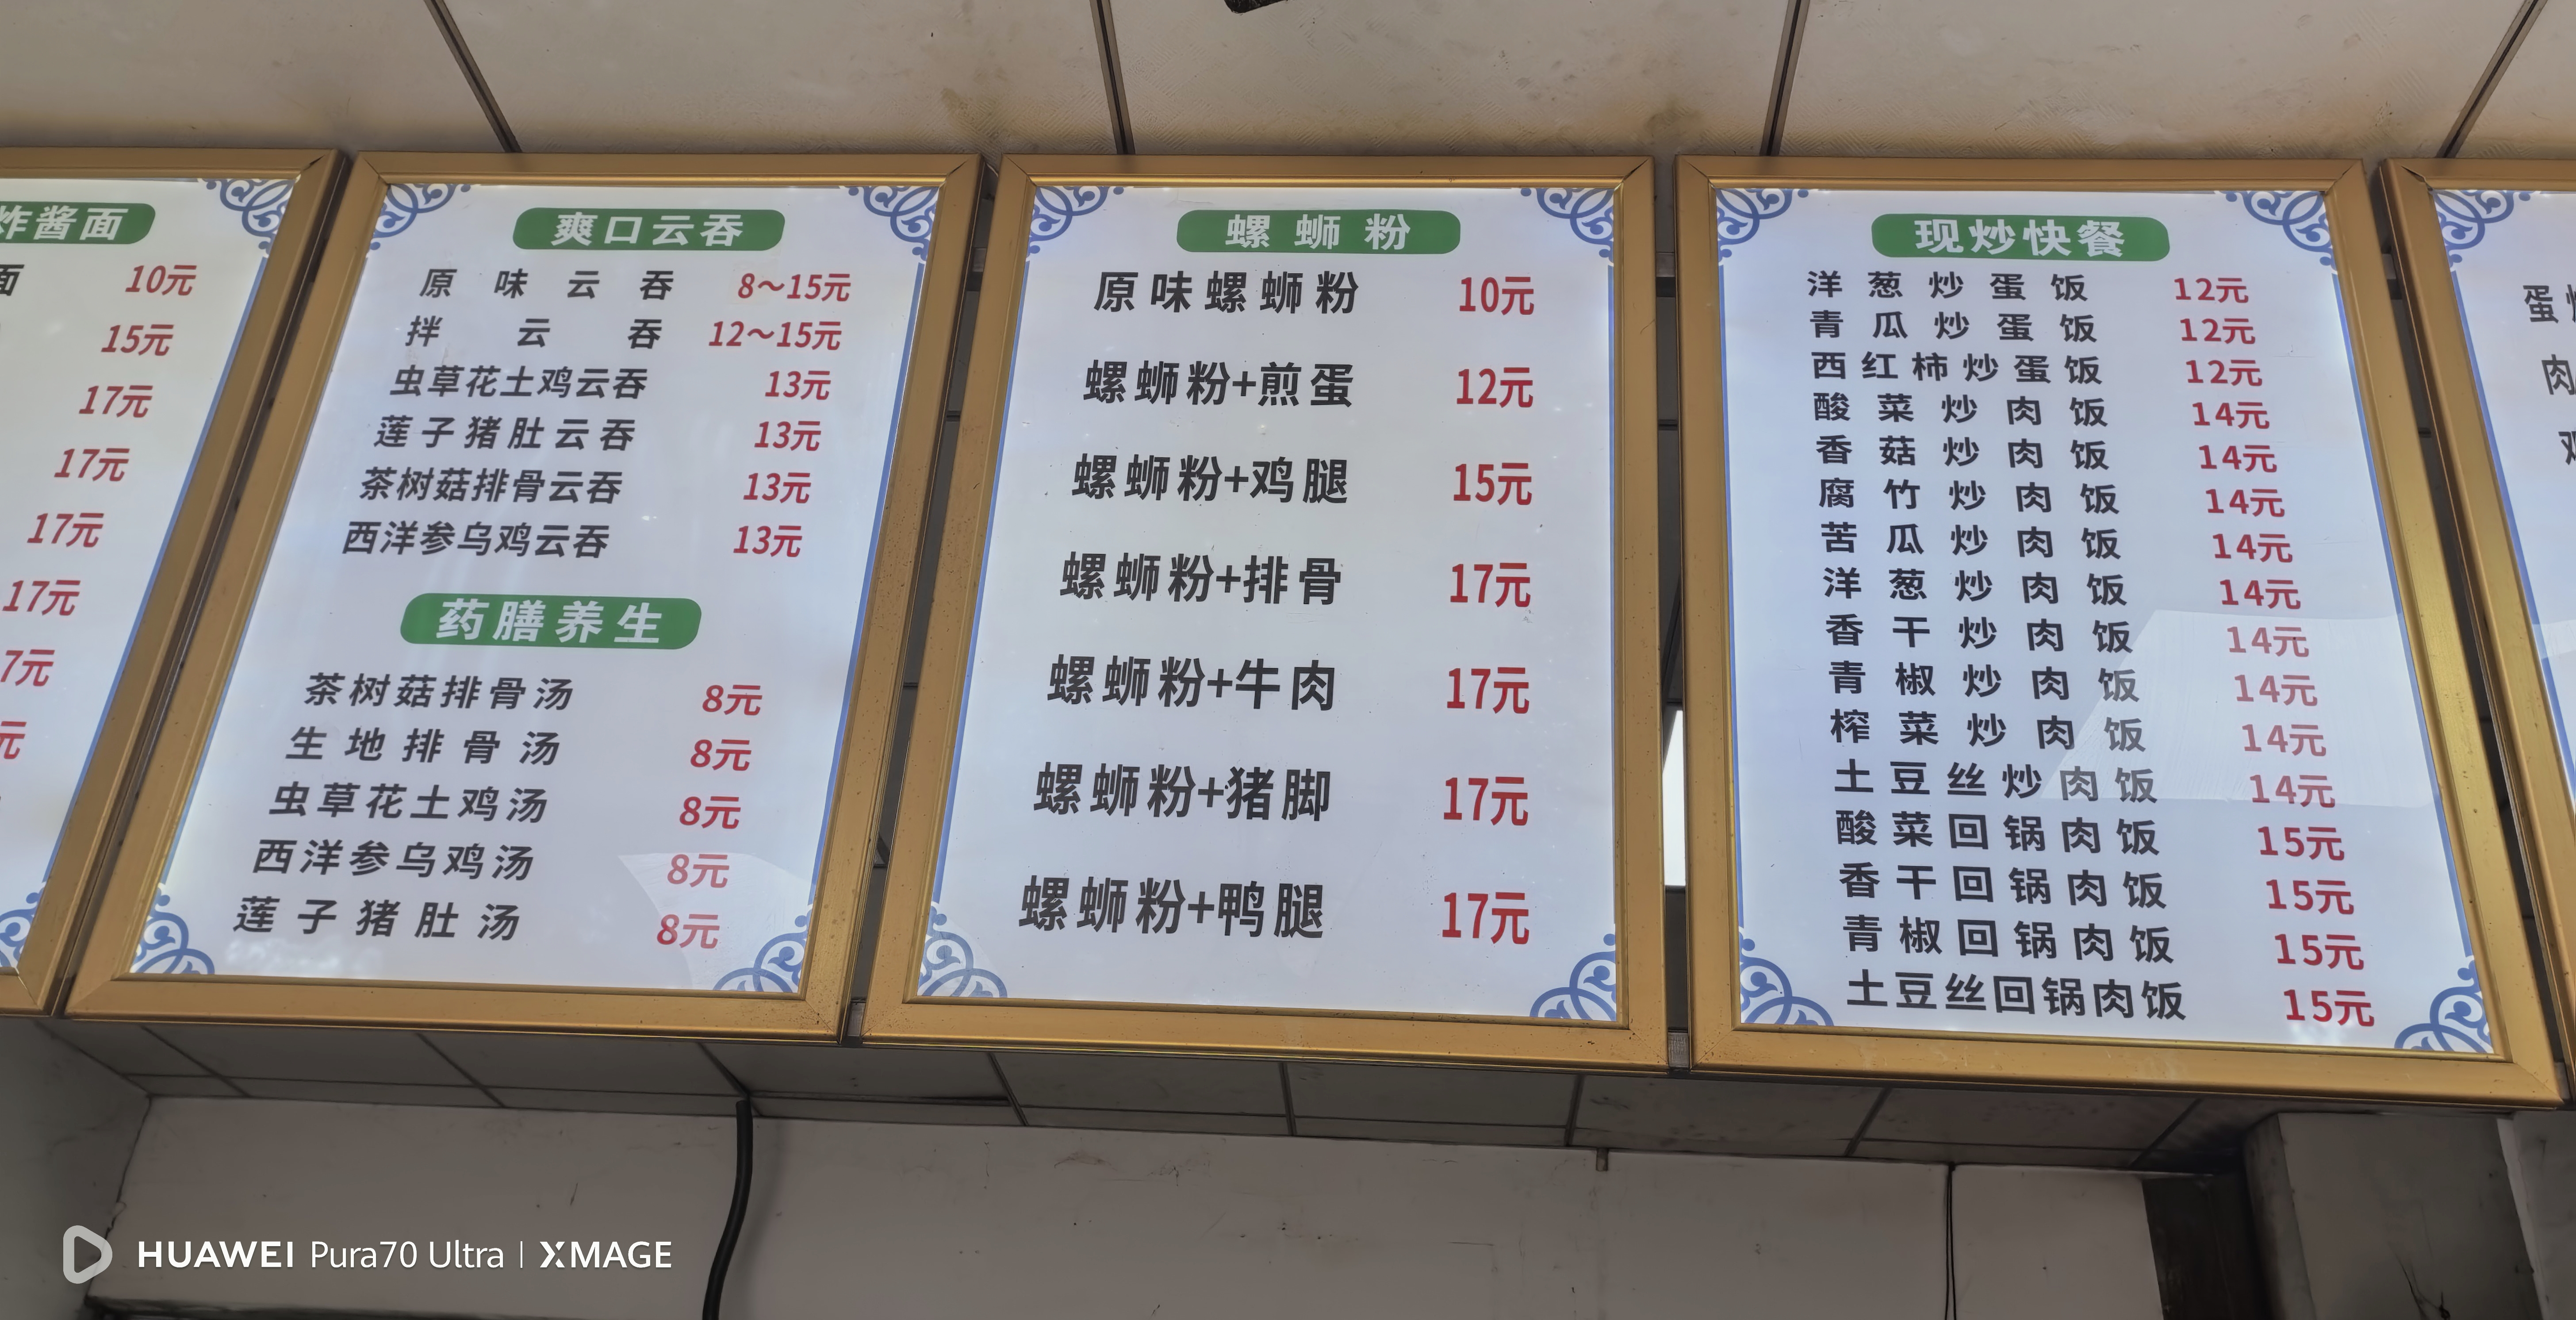 炸酱面
面 10元
15元
17元
17元
17元
17元
7元
元
爽口云吞
原味云吞 8～15元
拌云吞 12～15元
虫草花土鸡云吞 13元
莲子猪肚云吞 13元
茶树菇排骨云吞 13元
西洋参乌鸡云吞 13元
药膳养生
茶树菇排骨汤 8元
生地排骨汤 8元
虫草花土鸡汤 8元
西洋参乌鸡汤 8元
莲子猪肚汤 8元
螺蛳粉
原味螺蛳粉 10元
螺蛳粉+煎蛋 12元
螺蛳粉+鸡腿 15元
螺蛳粉+排骨 17元
螺蛳粉+牛肉 17元
螺蛳粉+猪脚 17元
螺蛳粉+鸭腿 17元
现炒快餐
洋葱炒蛋饭 12元
青瓜炒蛋饭 12元
西红柿炒蛋饭 12元
酸菜炒肉饭 14元
香菇炒肉饭 14元
腐竹炒肉饭 14元
苦瓜炒肉饭 14元
洋葱炒肉饭 14元
香干炒肉饭 14元
青椒炒肉饭 14元
榨菜炒肉饭 14元
土豆丝炒肉饭 14元
酸菜回锅肉饭 15元
香干回锅肉饭 15元
青椒回锅肉饭 15元
土豆丝回锅肉饭 15元
蛋
肉
HUAWEI Pura70 Ultra | XMAGE